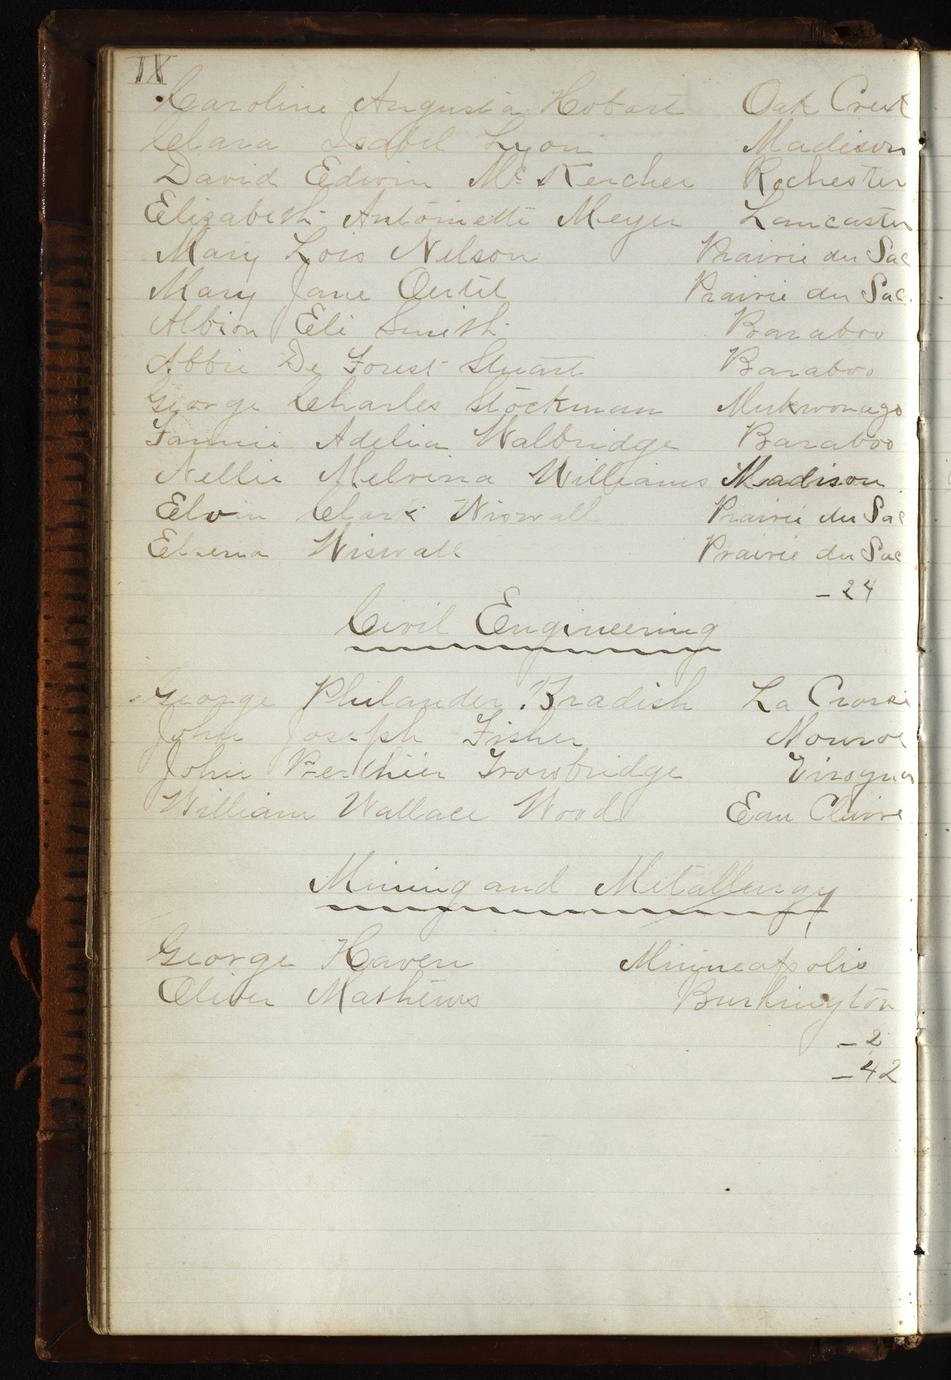 IX
Caroline Augusta Hobart Oak Creek
Clara Isabel Lyon Madison
David Edwin McKercher Rochester
Elizabeth Antoinette Meyer Lancaster
Mary Lois Nelson Prairie du Sac
Mary Jane Oertel Prairie du Sac.
Albion Eli Smith Baraboo
Abbie De Forest Stuart Baraboo
George Charles Stockman Mukwonago
Fannie Adelia Walbridge Baraboo
Nellie Melvina Williams Madison
Elvin Clark Wiswall Prairie du Sac
Wiswall Prairie du Sac
- 24
Civil Engineering
George Philander Bradish La Crosse
John Joseph Fisher Monroe
John Trowbridge Viroqua
William Wallace Wood Eau Claire
Mining and Metallurgy
George Haven Minneapolis
Oliver Mathews Burlington
- 2
- 42